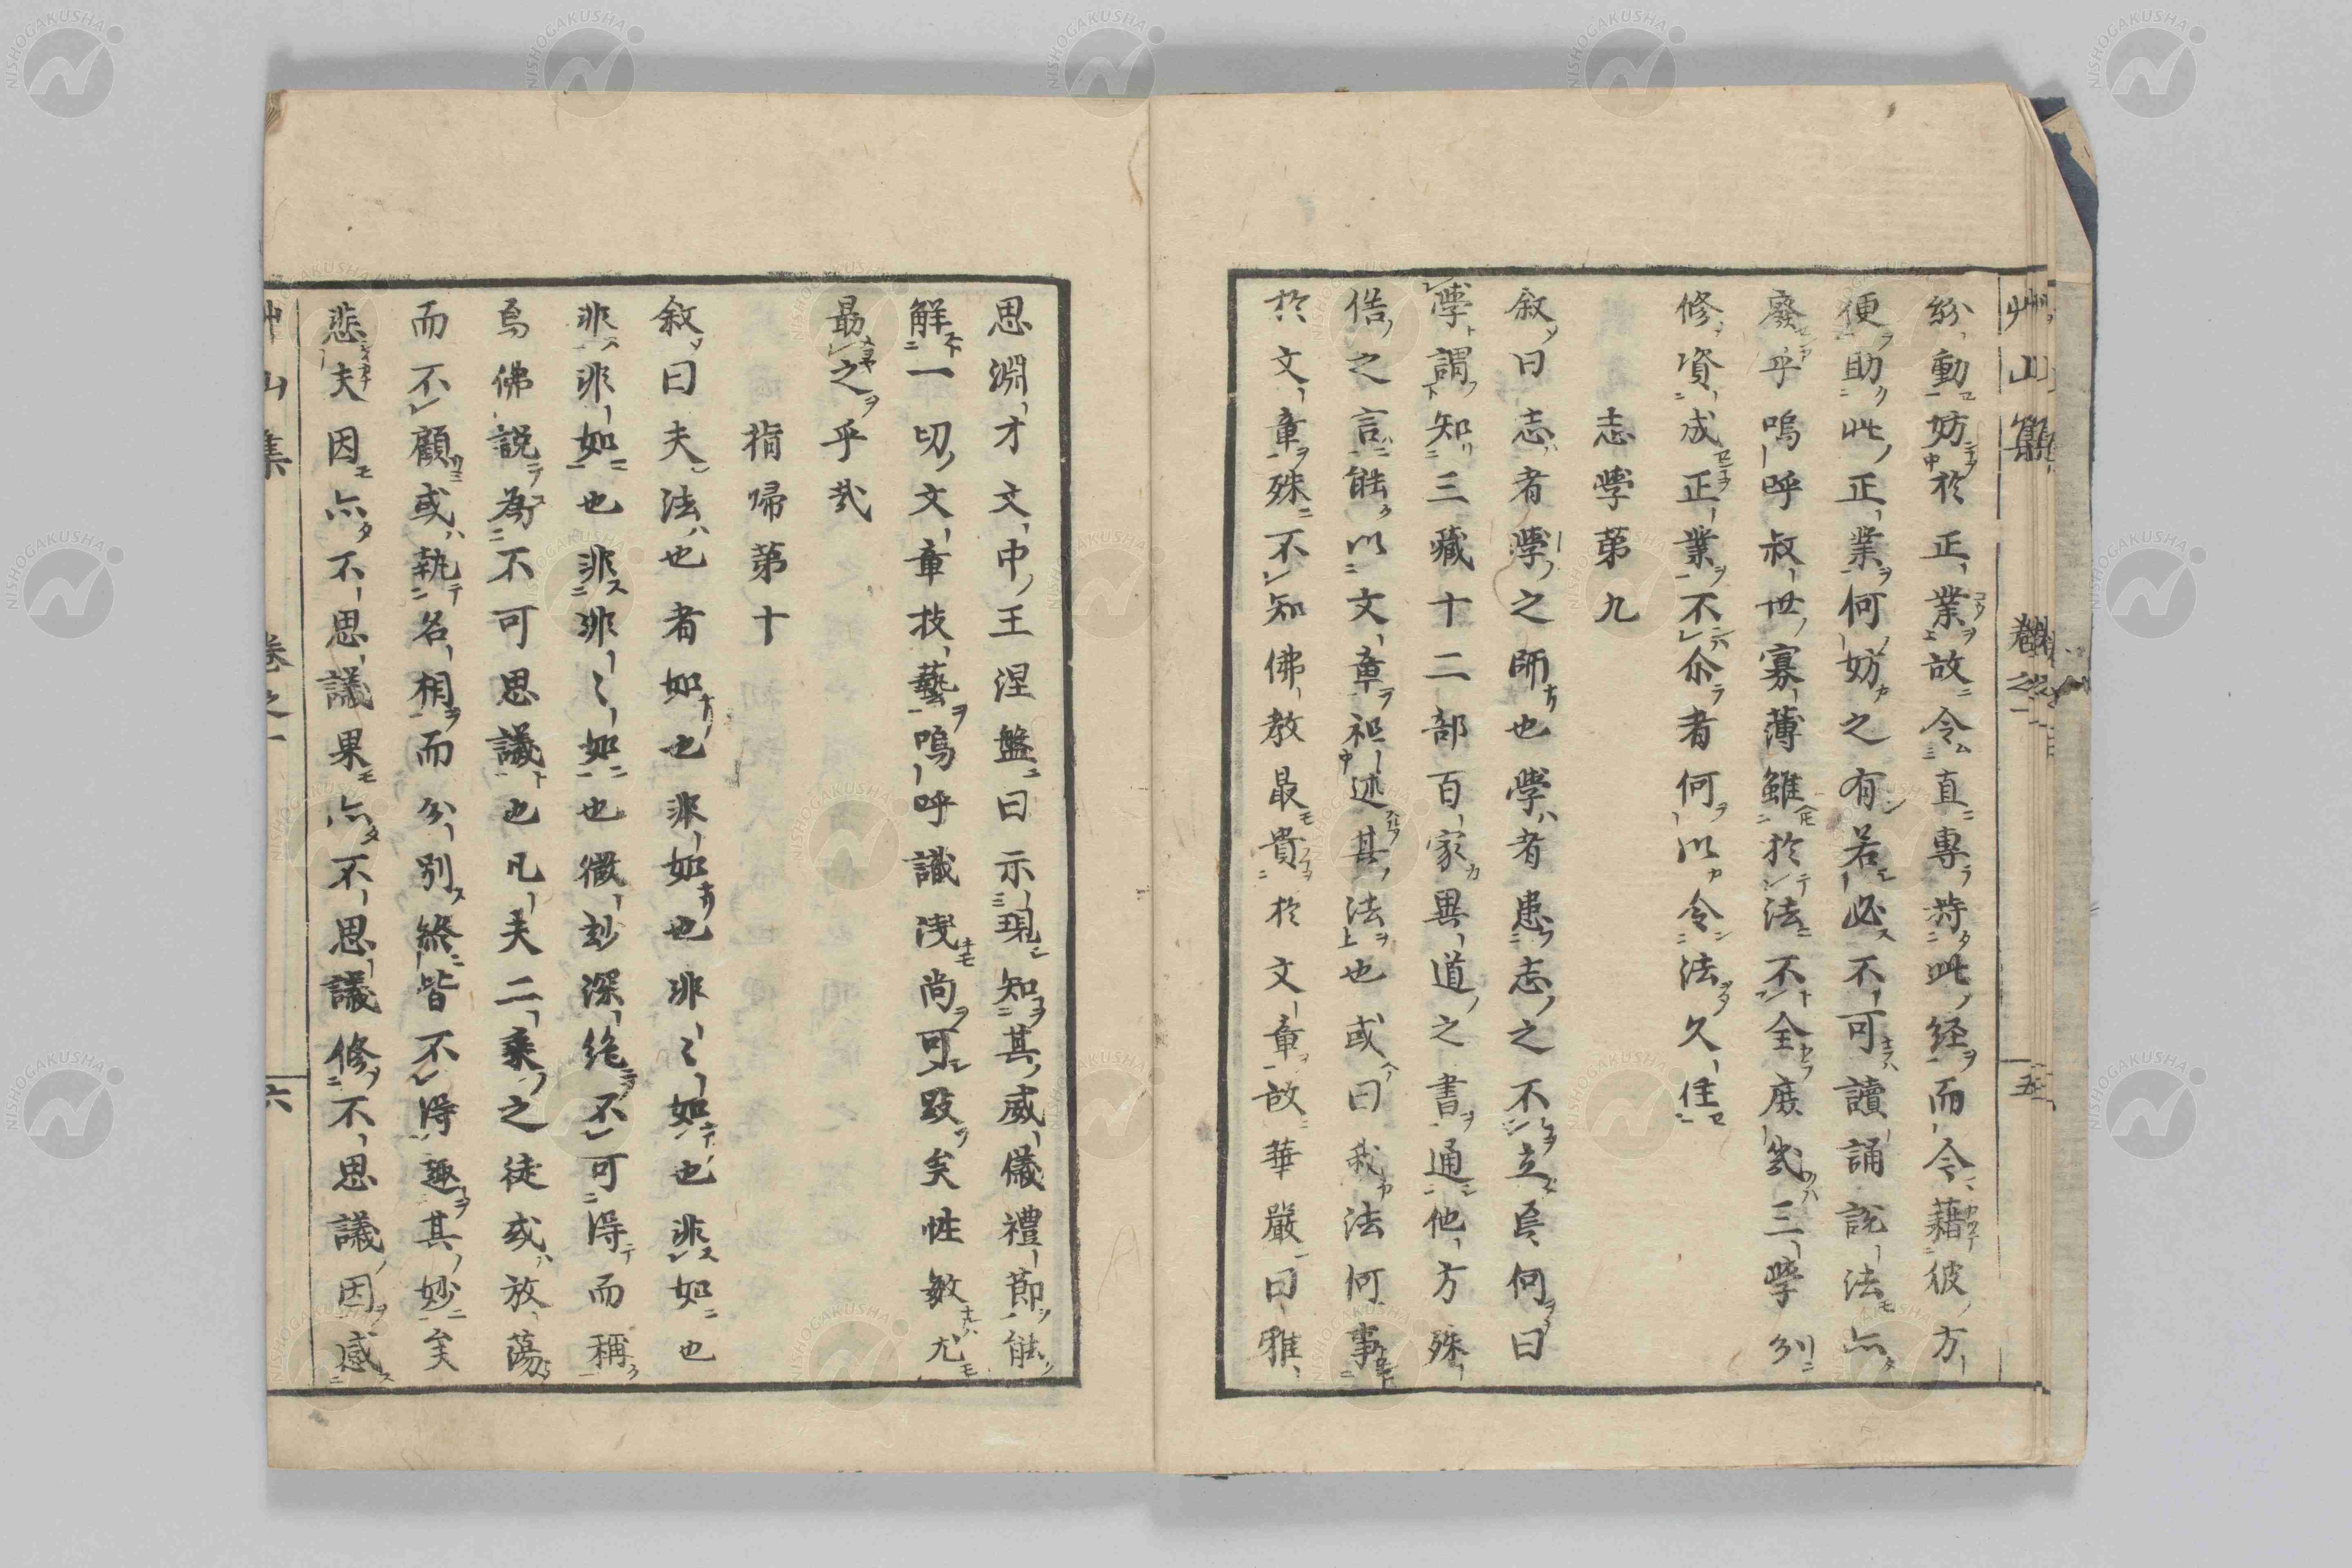 艸山集　卷之一　五
紛動妨於正業故令直專持此経而令藉彼方
便助此正業何妨之有若必不可讀誦説法亦
廢乎嗚呼叔世寡薄雖於法不全廢幾三學列
修資成正業不尒者何以令法久住
志學第九
叙曰志者學之師也學者患志之不立焉何曰
學謂知三藏十二部百家異道之書通他方殊
俗之言能以文章祖述其法也或曰我法何事
於文章殊不知佛教最貴於文章故華嚴曰雅
思淵才文中王涅盤曰示現知其威儀禮節能
解一切文章技藝嗚呼識淺尚可跂矣性敏尤
最之乎哉
指帰第十
叙曰夫法也者如也非如也非〻如也非如也
非非如也非非〻如也微玅深絶不可得而稱
焉佛説為不可思議也凡夫二乘之徒或放蕩
而不顧或執名相而分別終皆不得趣其妙矣
悲夫因亦不思議果亦不思議修不思議因感
艸山集　卷之一　六